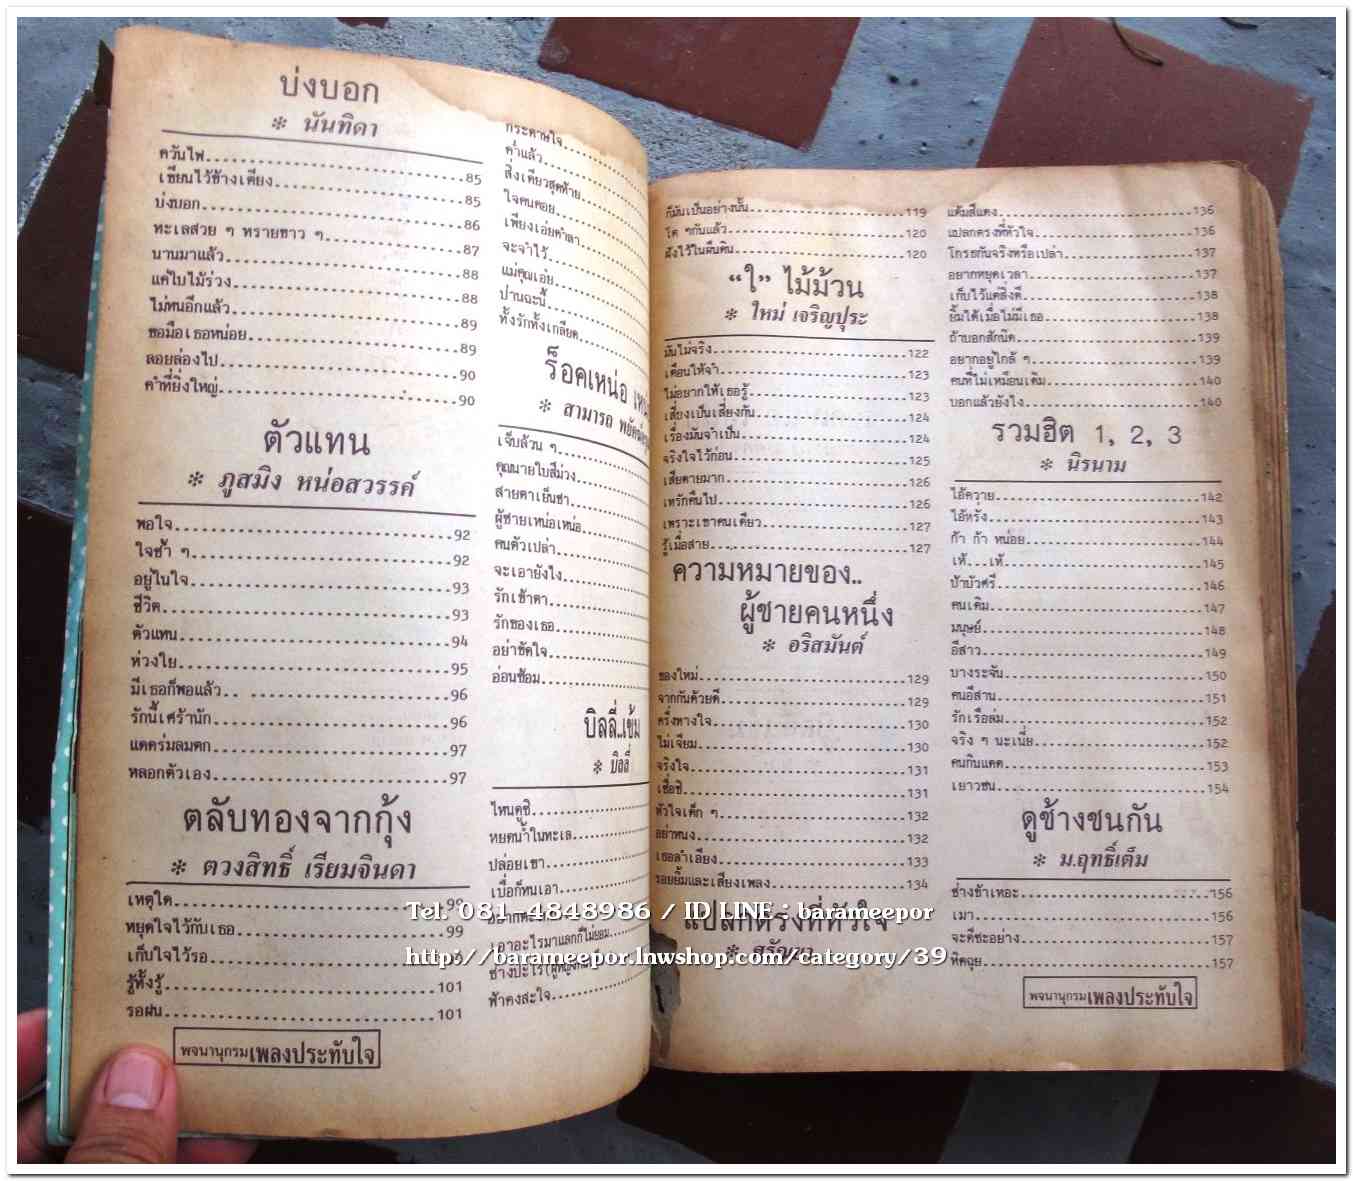 บ่งบอก
* นันทิดา
ควันไฟ 85
เขียนไว้ข้างเตียง 85
บ่งบอก 86
ทะเลสวย ๆ ทรายขาว ๆ 87
นานมาแล้ว 88
แค่ใบไม้ร่วง 88
ไม่ทนอีกแล้ว 89
ขอมือเธอหน่อย 89
ลอยล่องไป 90
คำที่ยิ่งใหญ่ 90
ตัวแทน
* ภูสมิง หน่อสวรรค์
พอใจ 92
ใจช้ำ ๆ 92
อยู่ในใจ 93
ชีวิต 93
ตัวแทน 94
ห่วงใย 95
มีเธอก็พอแล้ว 96
รักนี้เศร้านัก 96
แดดร่มลมตก 97
หลอกตัวเอง 97
ตลับทองจากกุ้ง
* ตวงสิทธิ์ เรียมจินดา
เหตุใด 99
หยุดใจไว้กับเธอ 99
เก็บใจไว้รอ
รู้ทั้งรู้ 101
รอฝน 101
พจนานุกรมเพลงประทับใจ
กระดาษใจ
ค่ำแล้ว
สิ่งเดียวสุดท้าย
ใจคนคอย
เพียงเอ่ยคำลา
จะจำไว้
แม่คุณเอ๋ย
ปานฉะนี้
ทั้งรักทั้งเกลียด
ร็อคเหน่อ
* สามารถ
เจ็บล้วน ๆ
คุณนายใบสีม่วง
สายตาเย็นชา
ผู้ชายเหน่อเหน่อ
คนตัวเปล่า
จะเอายังไง
รักเข้าตา
รักของเธอ
อย่าขัดใจ
อ่อนซ้อม
บิลลี่..เข้ม
* บิลลี่
ไหนดูซิ
หยดน้ำในทะเล
ปล่อยเขา
เบื่อก็ทนเอา
เอาอะไรมาแลกก็ไม่ยอม
ฟ้าคงสะใจ
ก็มันเป็นอย่างนั้น 119
โด ๆกันแล้ว 120
ฝังไว้ในผืนดิน 120
“ใ” ไม้ม้วน
* ใหม่ เจริญปุระ
มันไม่จริง 122
เตือนให้จำ 123
ไม่อยากให้เธอรู้ 123
เสี่ยงเป็นเสี่ยงกัน 124
เรื่องมันจำเป็น 124
จริงใจไว้ก่อน 125
เสียดายมาก 126
เทรักคืนไป 126
เพราะเขาคนเดียว 127
รู้เมื่อสาย 127
ความหมายของ..
ผู้ชายคนหนึ่ง
* อริสมันต์
ของใหม่ 129
จากกันด้วยดี 129
ครึ่งทางใจ 130
ไม่เจียม 130
จริงใจ 131
เชื่อซิ 131
หัวใจเด็ก ๆ 132
อย่าหนง 132
เธอลำเอียง 133
รอยยิ้มและเสียงเพลง 134
แปลกตรงที่หัวใจ
* สุรัญญา
แต้มสีแดง 136
แปลกตรงที่หัวใจ 136
โกรธกันจริงหรือเปล่า 137
อยากหยุดเวลา 137
เก็บไว้แต่สิ่งดี 138
ยิ้มได้เมื่อไม่มีเธอ 138
ถ้าบอกสักนิด 139
อยากอยู่ใกล้ ๆ 139
คนที่ไม่เหมือนเดิม 140
บอกแล้วยังไง 140
รวมฮิต 1, 2, 3
* นิรนาม
ไอ้ควาย 142
ไอ้หรั่ง 143
ก๊า ก๊า หน่อย 144
เห้...เห้ 145
ป้าบัวศรี 146
คนเดิม 147
มนุษย์ 148
อีสาว 149
บางระจัน 150
คนอีสาน 151
รักเรือล่ม 152
จริง ๆ นะเนี่ย 152
คนกินแดด 153
เยาวชน 154
ดูช้างชนกัน
* ม.ฤทธิ์เต็ม
ช่างข้าเหอะ 156
เมา 156
จะดีซะอย่าง 157
หิดฉุย 157
พจนานุกรมเพลงประทับใจ
Tel. 081-4848986 / ID LINE : barameepor
http://barameepor.lnwshop.com/category/39